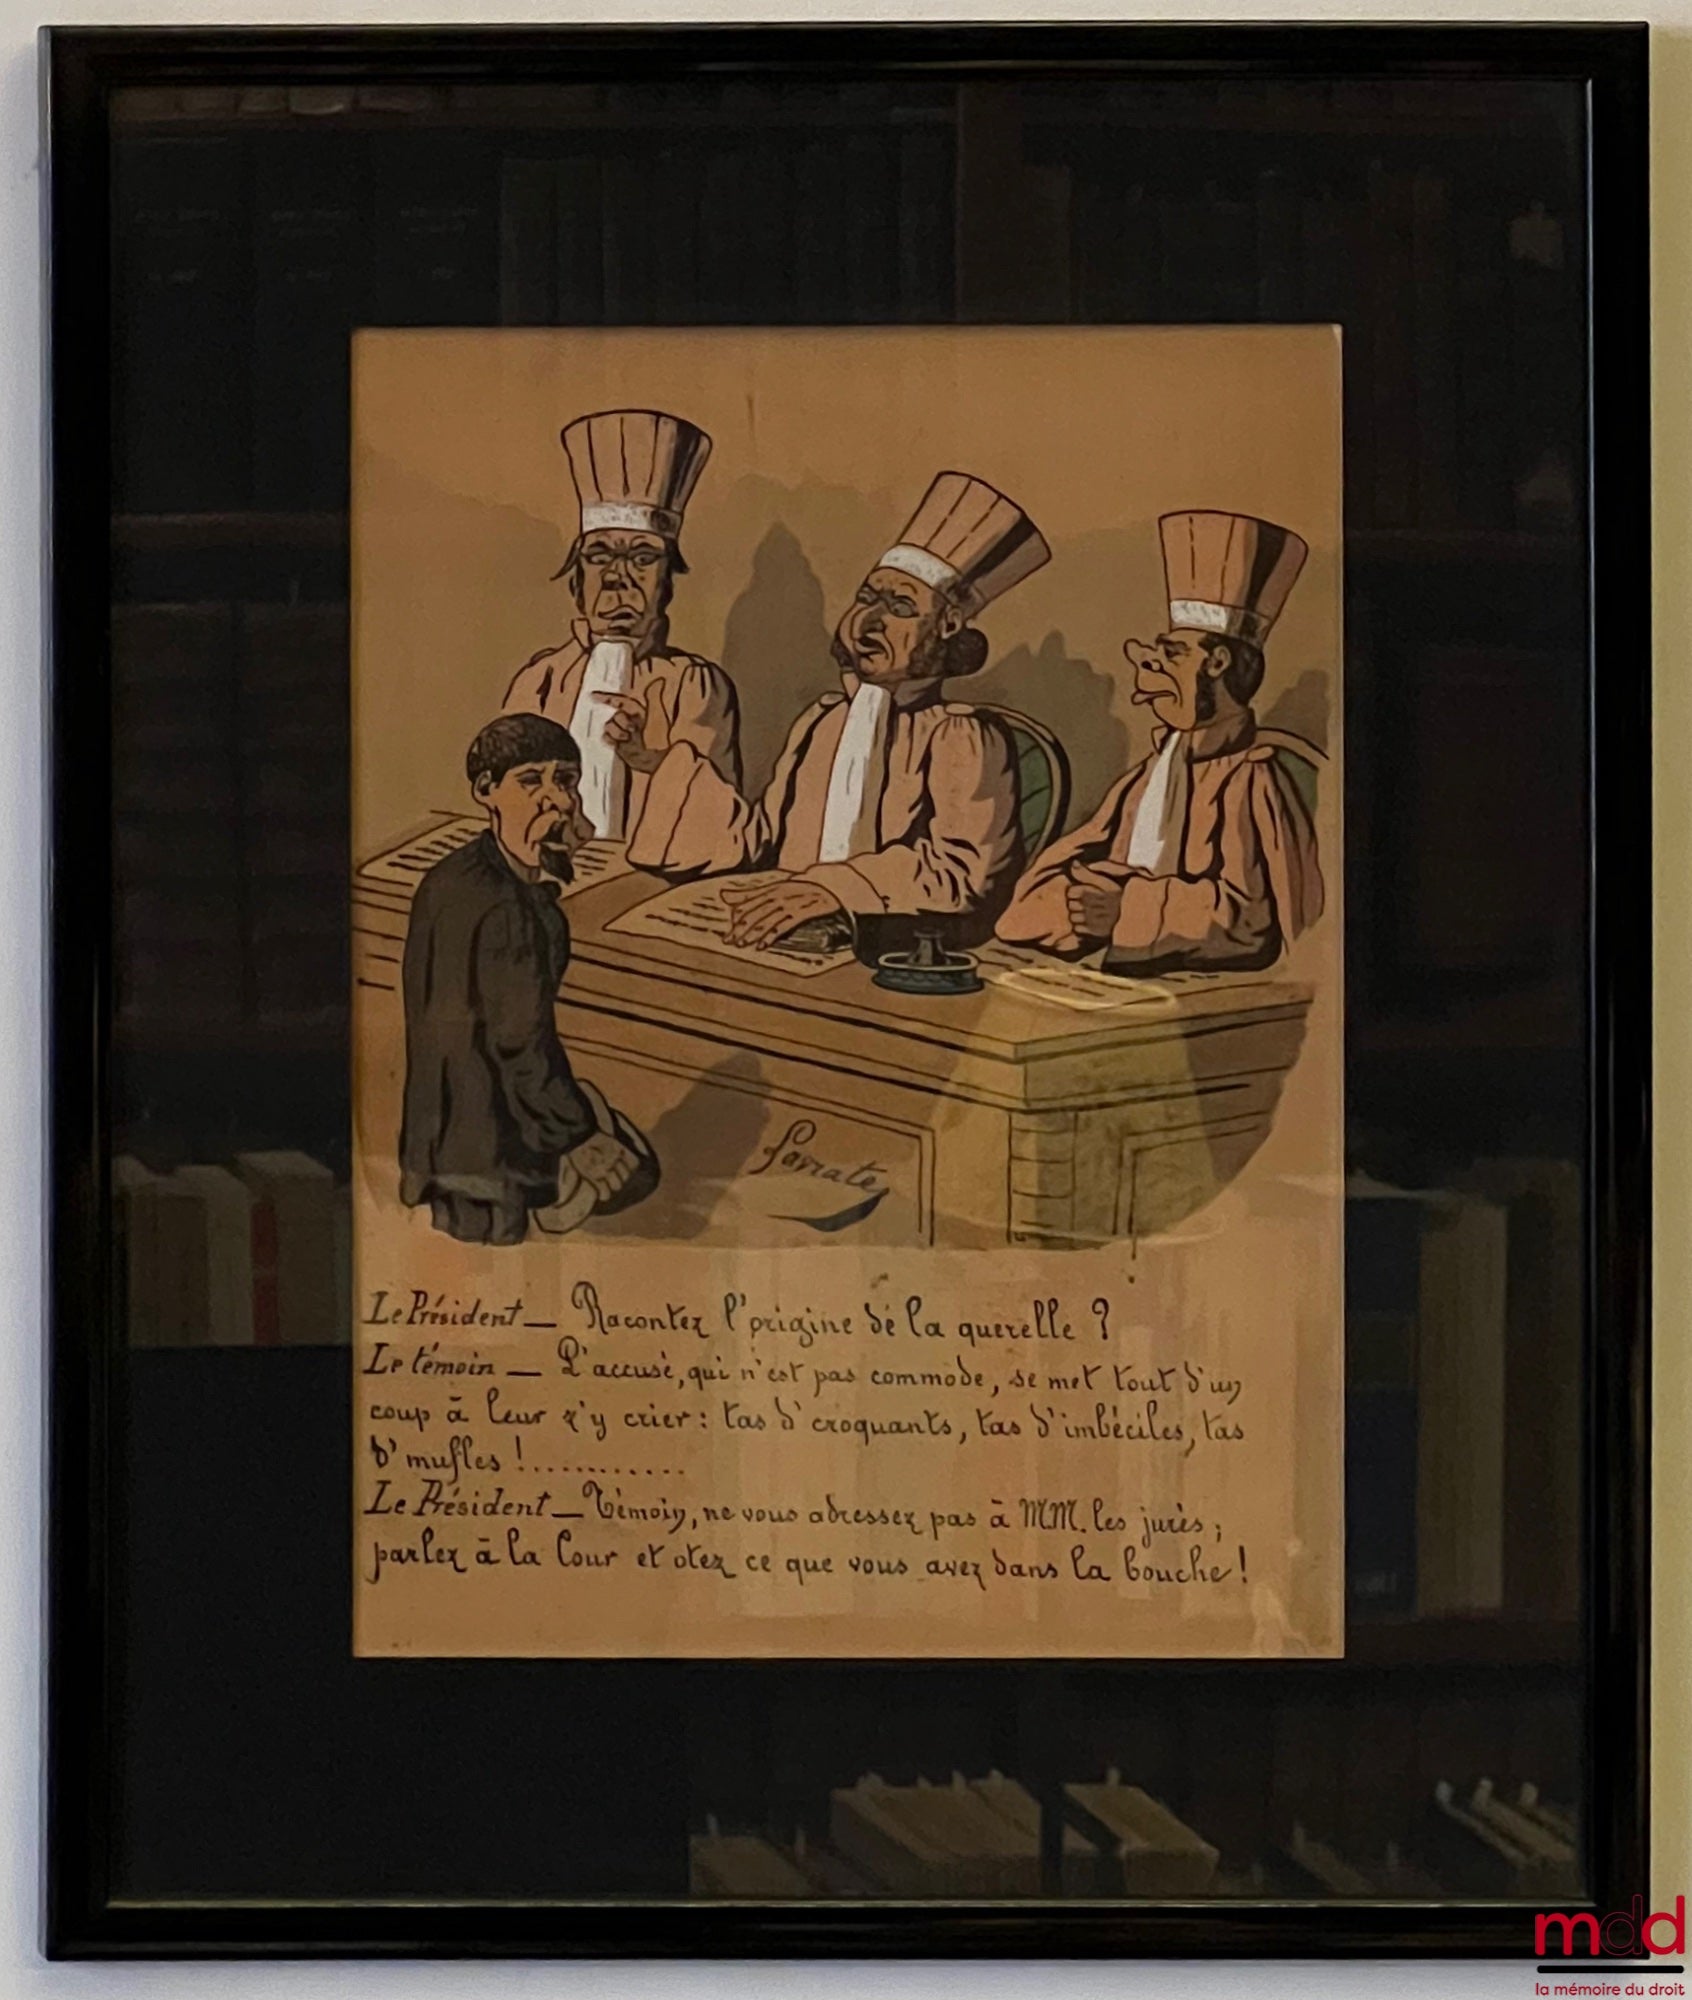 Lavrate
Le Président — Racontez l'origine dé la querelle ?
Le témoin — L'accusé, qui n'est pas commode, se met tout d'un
coup à leur z'y crier : tas d'croquants, tas d'imbéciles, tas
d'mufles !............
Le Président — Témoin, ne vous adressez pas à MM. les jurés ;
parlez à la Cour et otez ce que vous avez dans la bouche !
mdd
la mémoire du droit